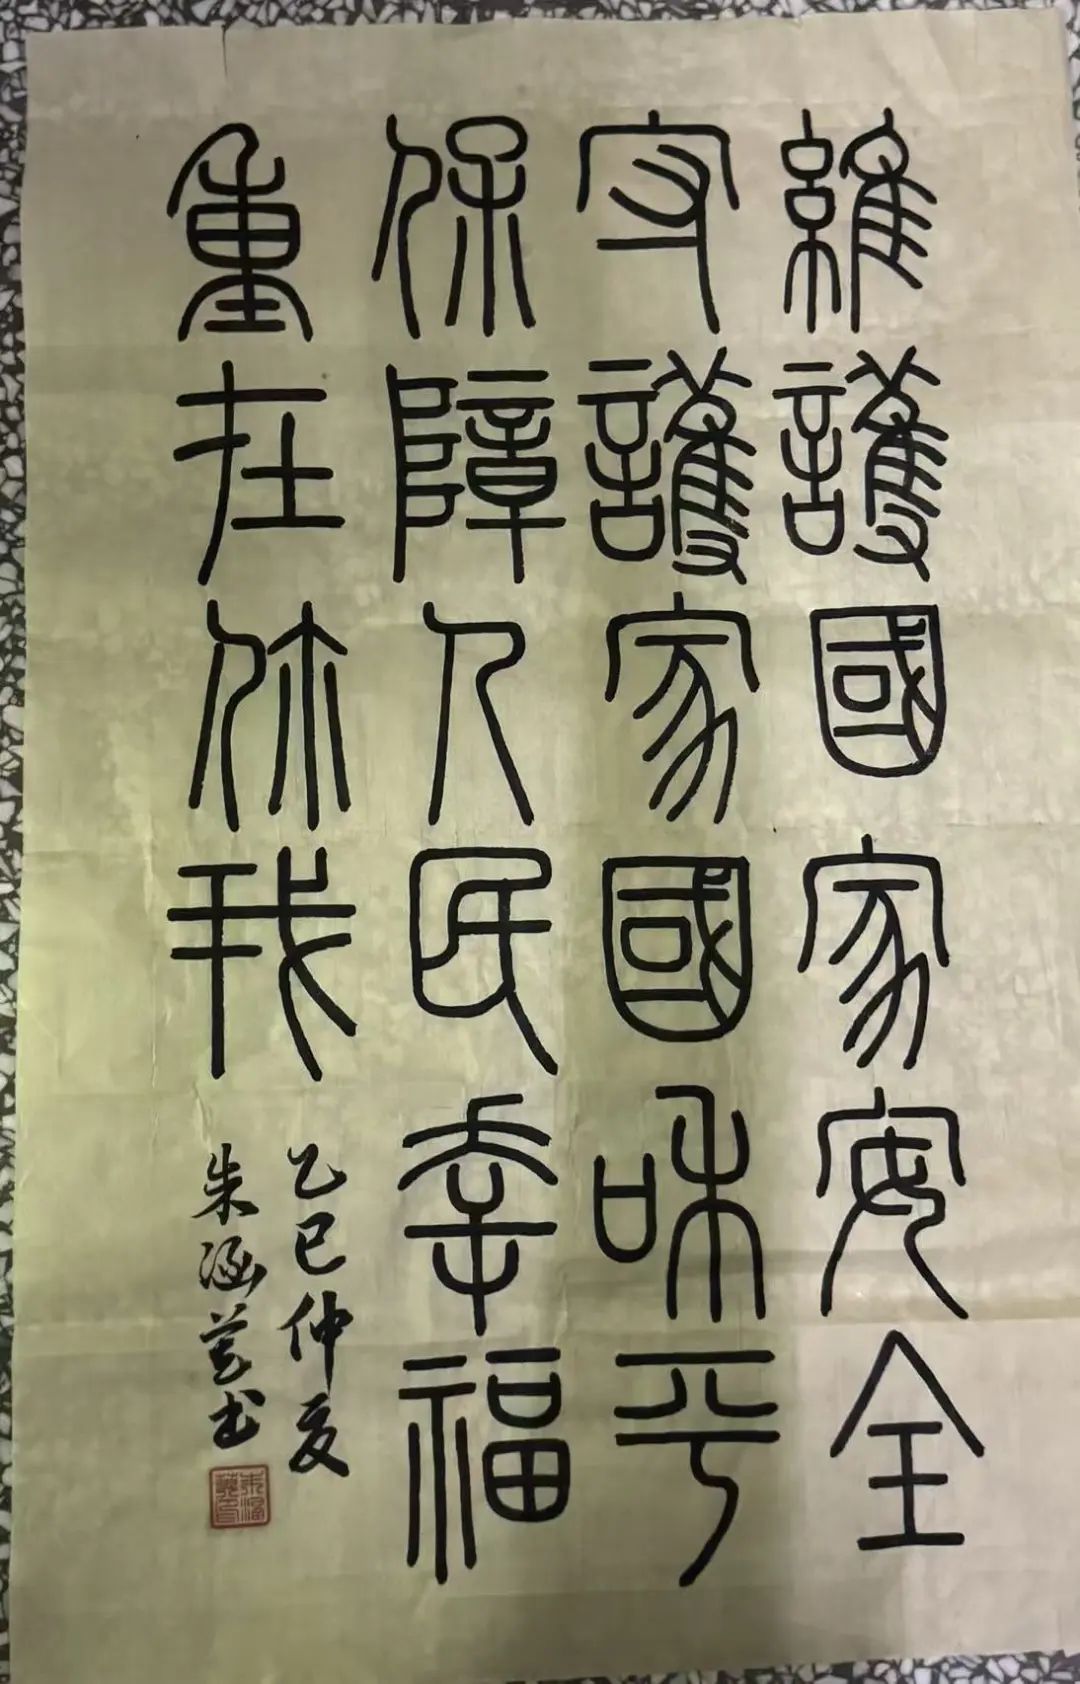 維護國家安全
守護家國和平
保障人民幸福
重在你我
乙巳仲夏
朱涵萱书